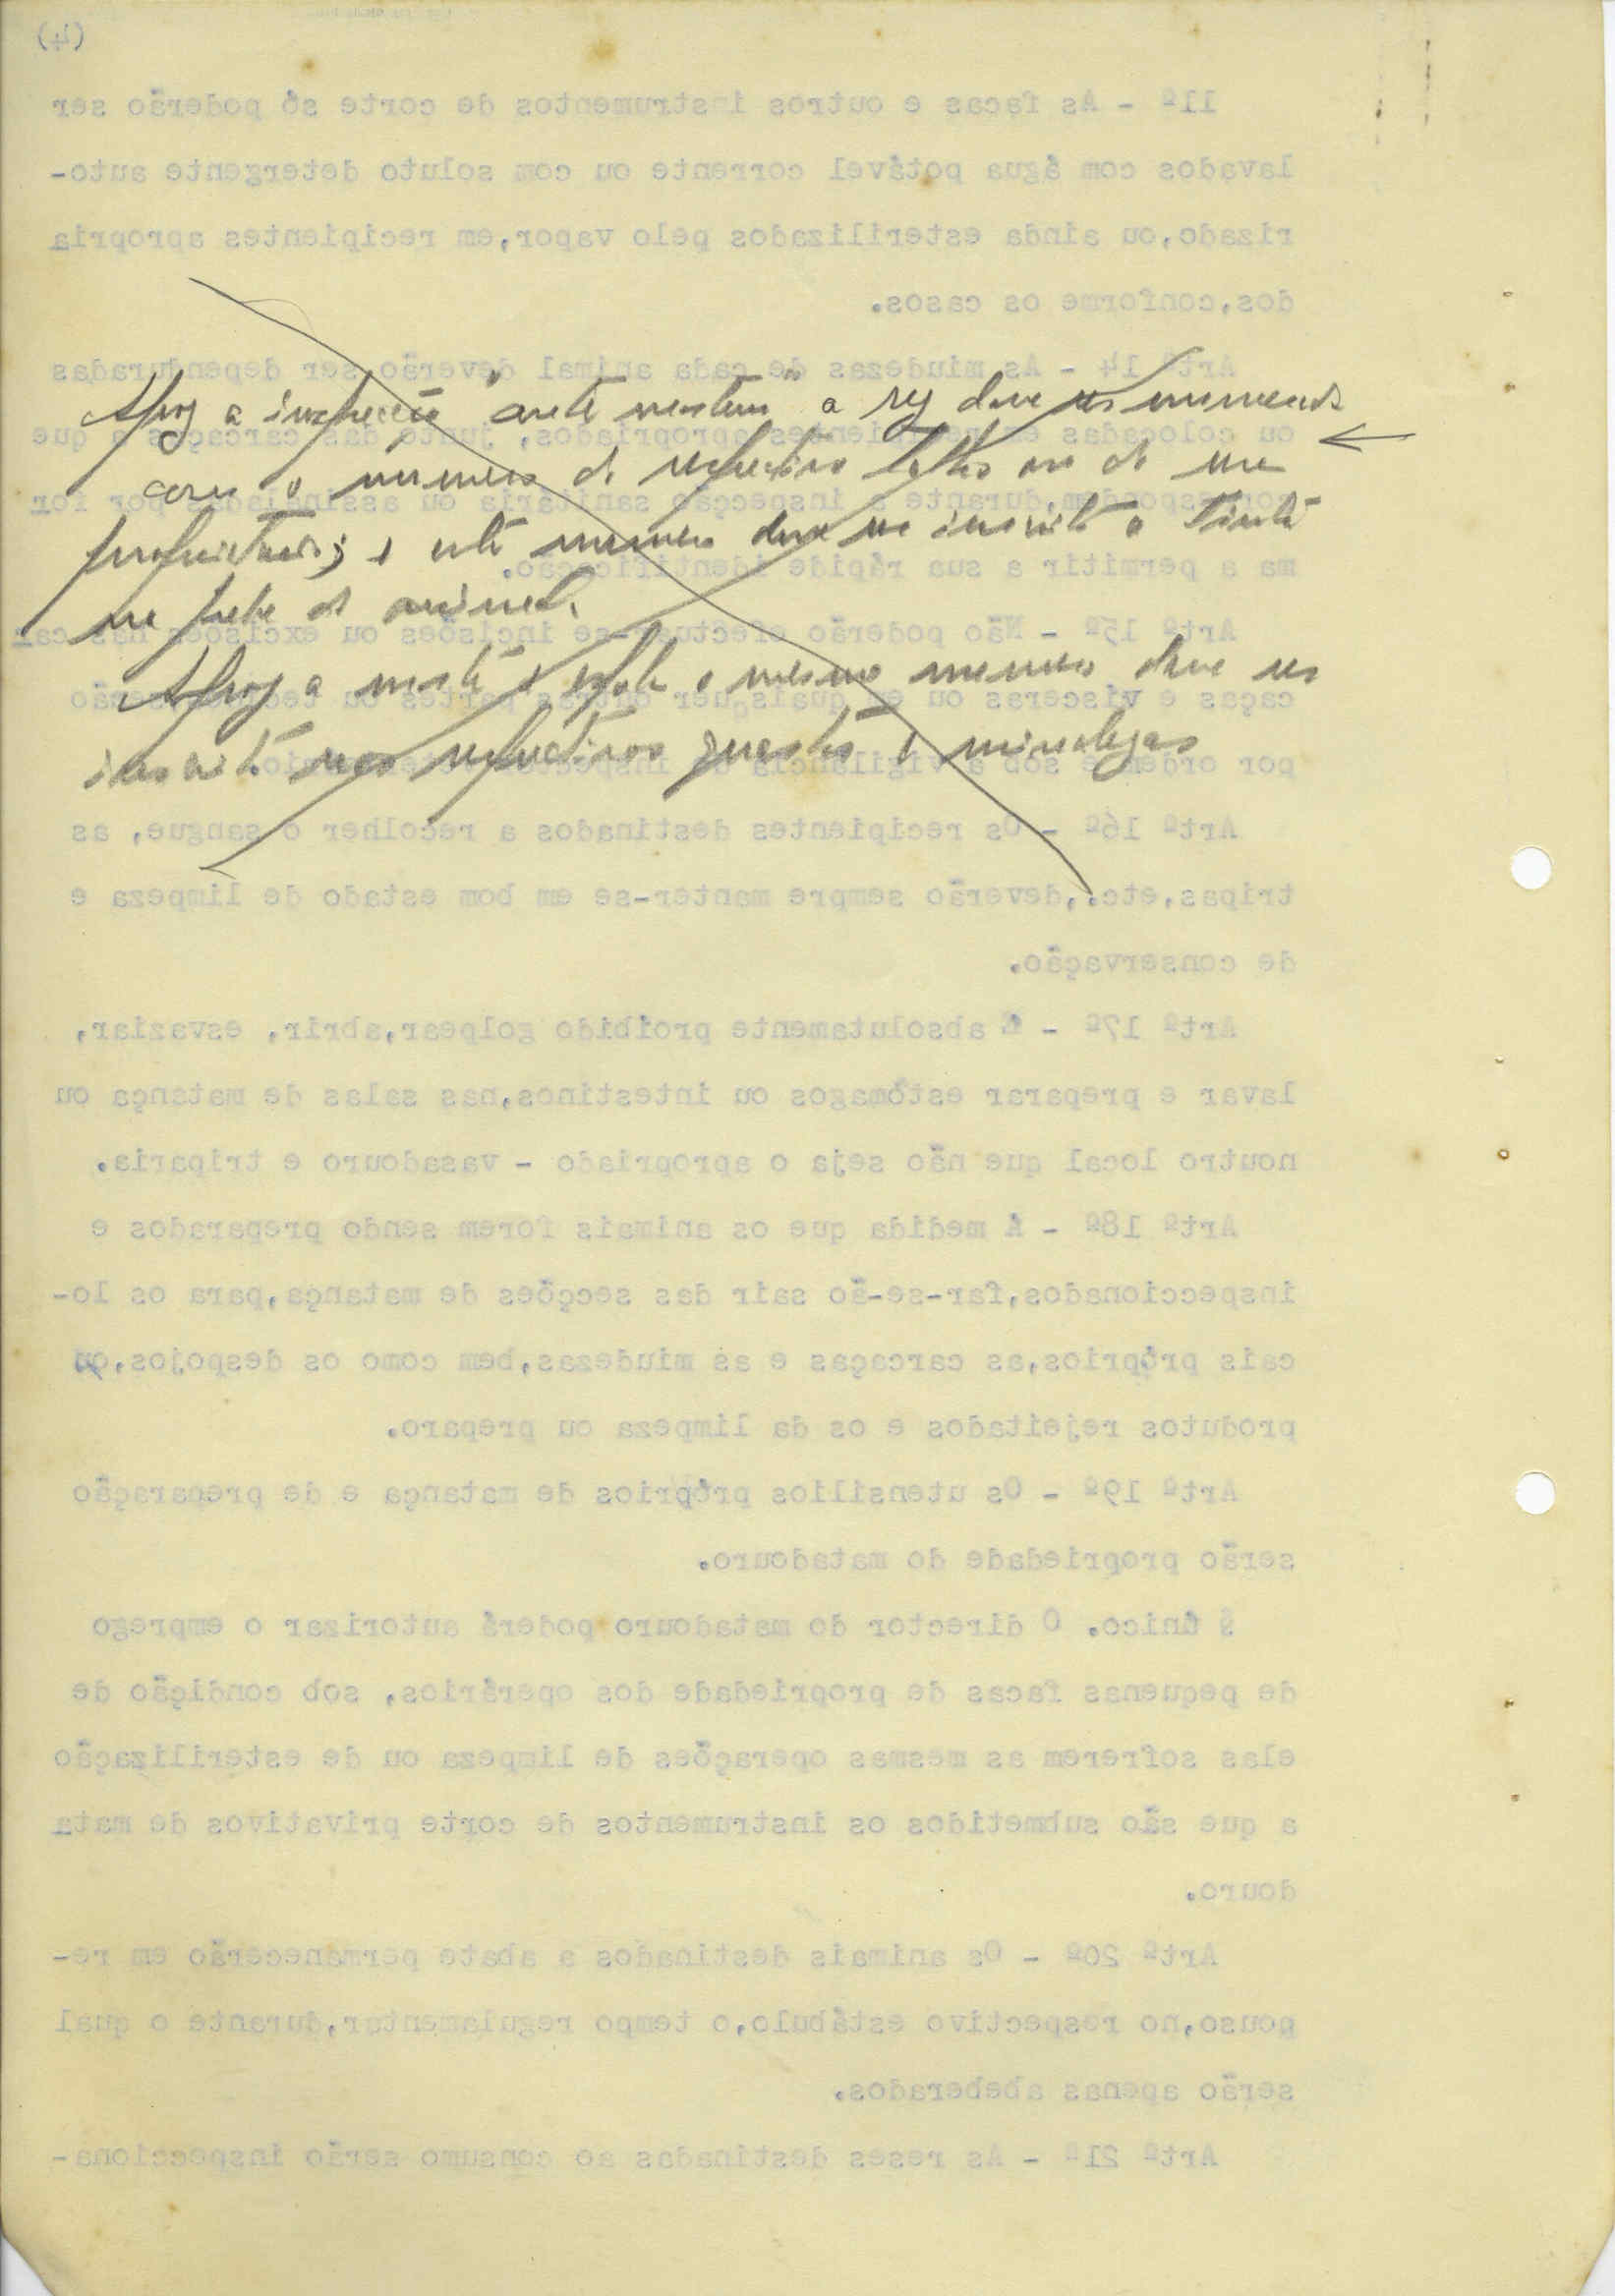 (4)
11º - As facas e outros instrumentos de corte só poderão ser
lavados com água potável corrente ou com soluto detergente auto-
rizado,ou ainda esterilizados pelo vapor,em recipientes apropria
dos,conforme os casos.
Artº 14 - As miudezas de cada animal deverão ser dependuradas
Após a inspecção "ante mortem" a rez deve ser numerada
ou colocadas em recipientes apropriados, junto das carcaças a que
com o numero do respectivo talho ou do seu
correspondem,durante a inspecção sanitária ou assinaladas por for
proprietario; e este numero deve ser inscrito a tinta
ma a permitir a sua rápida identificação.
na pele do animal.
Artº 15º - Não poderão efectuar-se incisões ou excisões nas car
Após a morte e esfola o mesmo numero deve ser
caças e vísceras ou em quaisquer outras partes ou tecidos senão
inscrito nos respectivos quartos e miudezas
por ordem e sob a vigilância do inspector
Artº 16º - Os recipientes destinados a recolher o sangue, as
tripas,etc.,deverão sempre manter-se em bom estado de limpeza e
de conservação.
Artº 17º - É absolutamente proibido golpear,abrir, esvaziar,
lavar e preparar estômagos ou intestinos,nas salas de matança ou
noutro local que não seja o apropriado - vasadouro e triparia.
Artº 18º - Á medida que os animais forem sendo preparados e
inspeccionados,far-se-ão sair das secções de matança,para os lo-
cais próprios,as carcaças e as miudezas,bem como os despojos,ou
produtos rejeitados e os da limpeza ou preparo.
Artº 19º - Os utensilios próprios de matança e de preparação
serão propriedade do matadouro.
§ único. O director do matadouro poderá autorizar o emprego
de pequenas facas de propriedade dos operários, sob condição de
elas sofrerem as mesmas operações de limpeza ou de esterilização
a que são submetidos os instrumentos de corte privativos de mata
douro.
Artº 20º - Os animais destinados a abate permanecerão em re-
pouso,no respectivo estábulo,o tempo regulamentar,durante o qual
serão apenas abeberados.
Artº 21º - As reses destinadas ao consumo serão inspecciona-